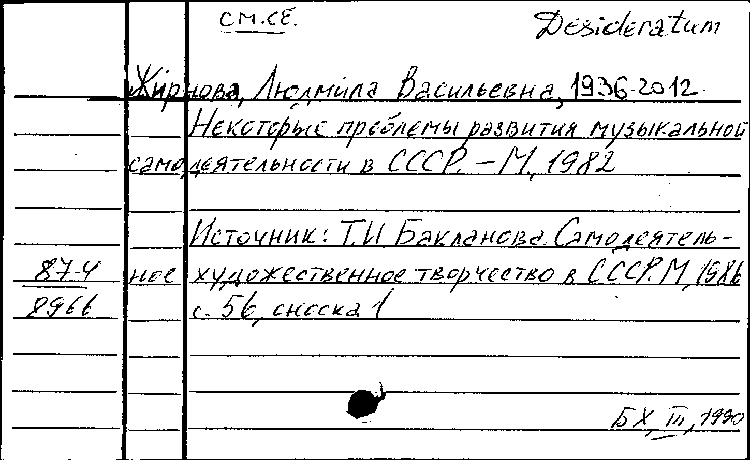 см. СЕ.
Desideratum
Жирнова, Людмила Васильевна, 1936-2012
Некоторые проблемы развития музыкальной
самодеятельности в СССР. – М, 1982
Источник: Т.И Бакланова. Самодеятель-
87-4 ное художественное творчество в СССР. М, 1986
8966 с. 56, сноска 1
БХ, III, 1990